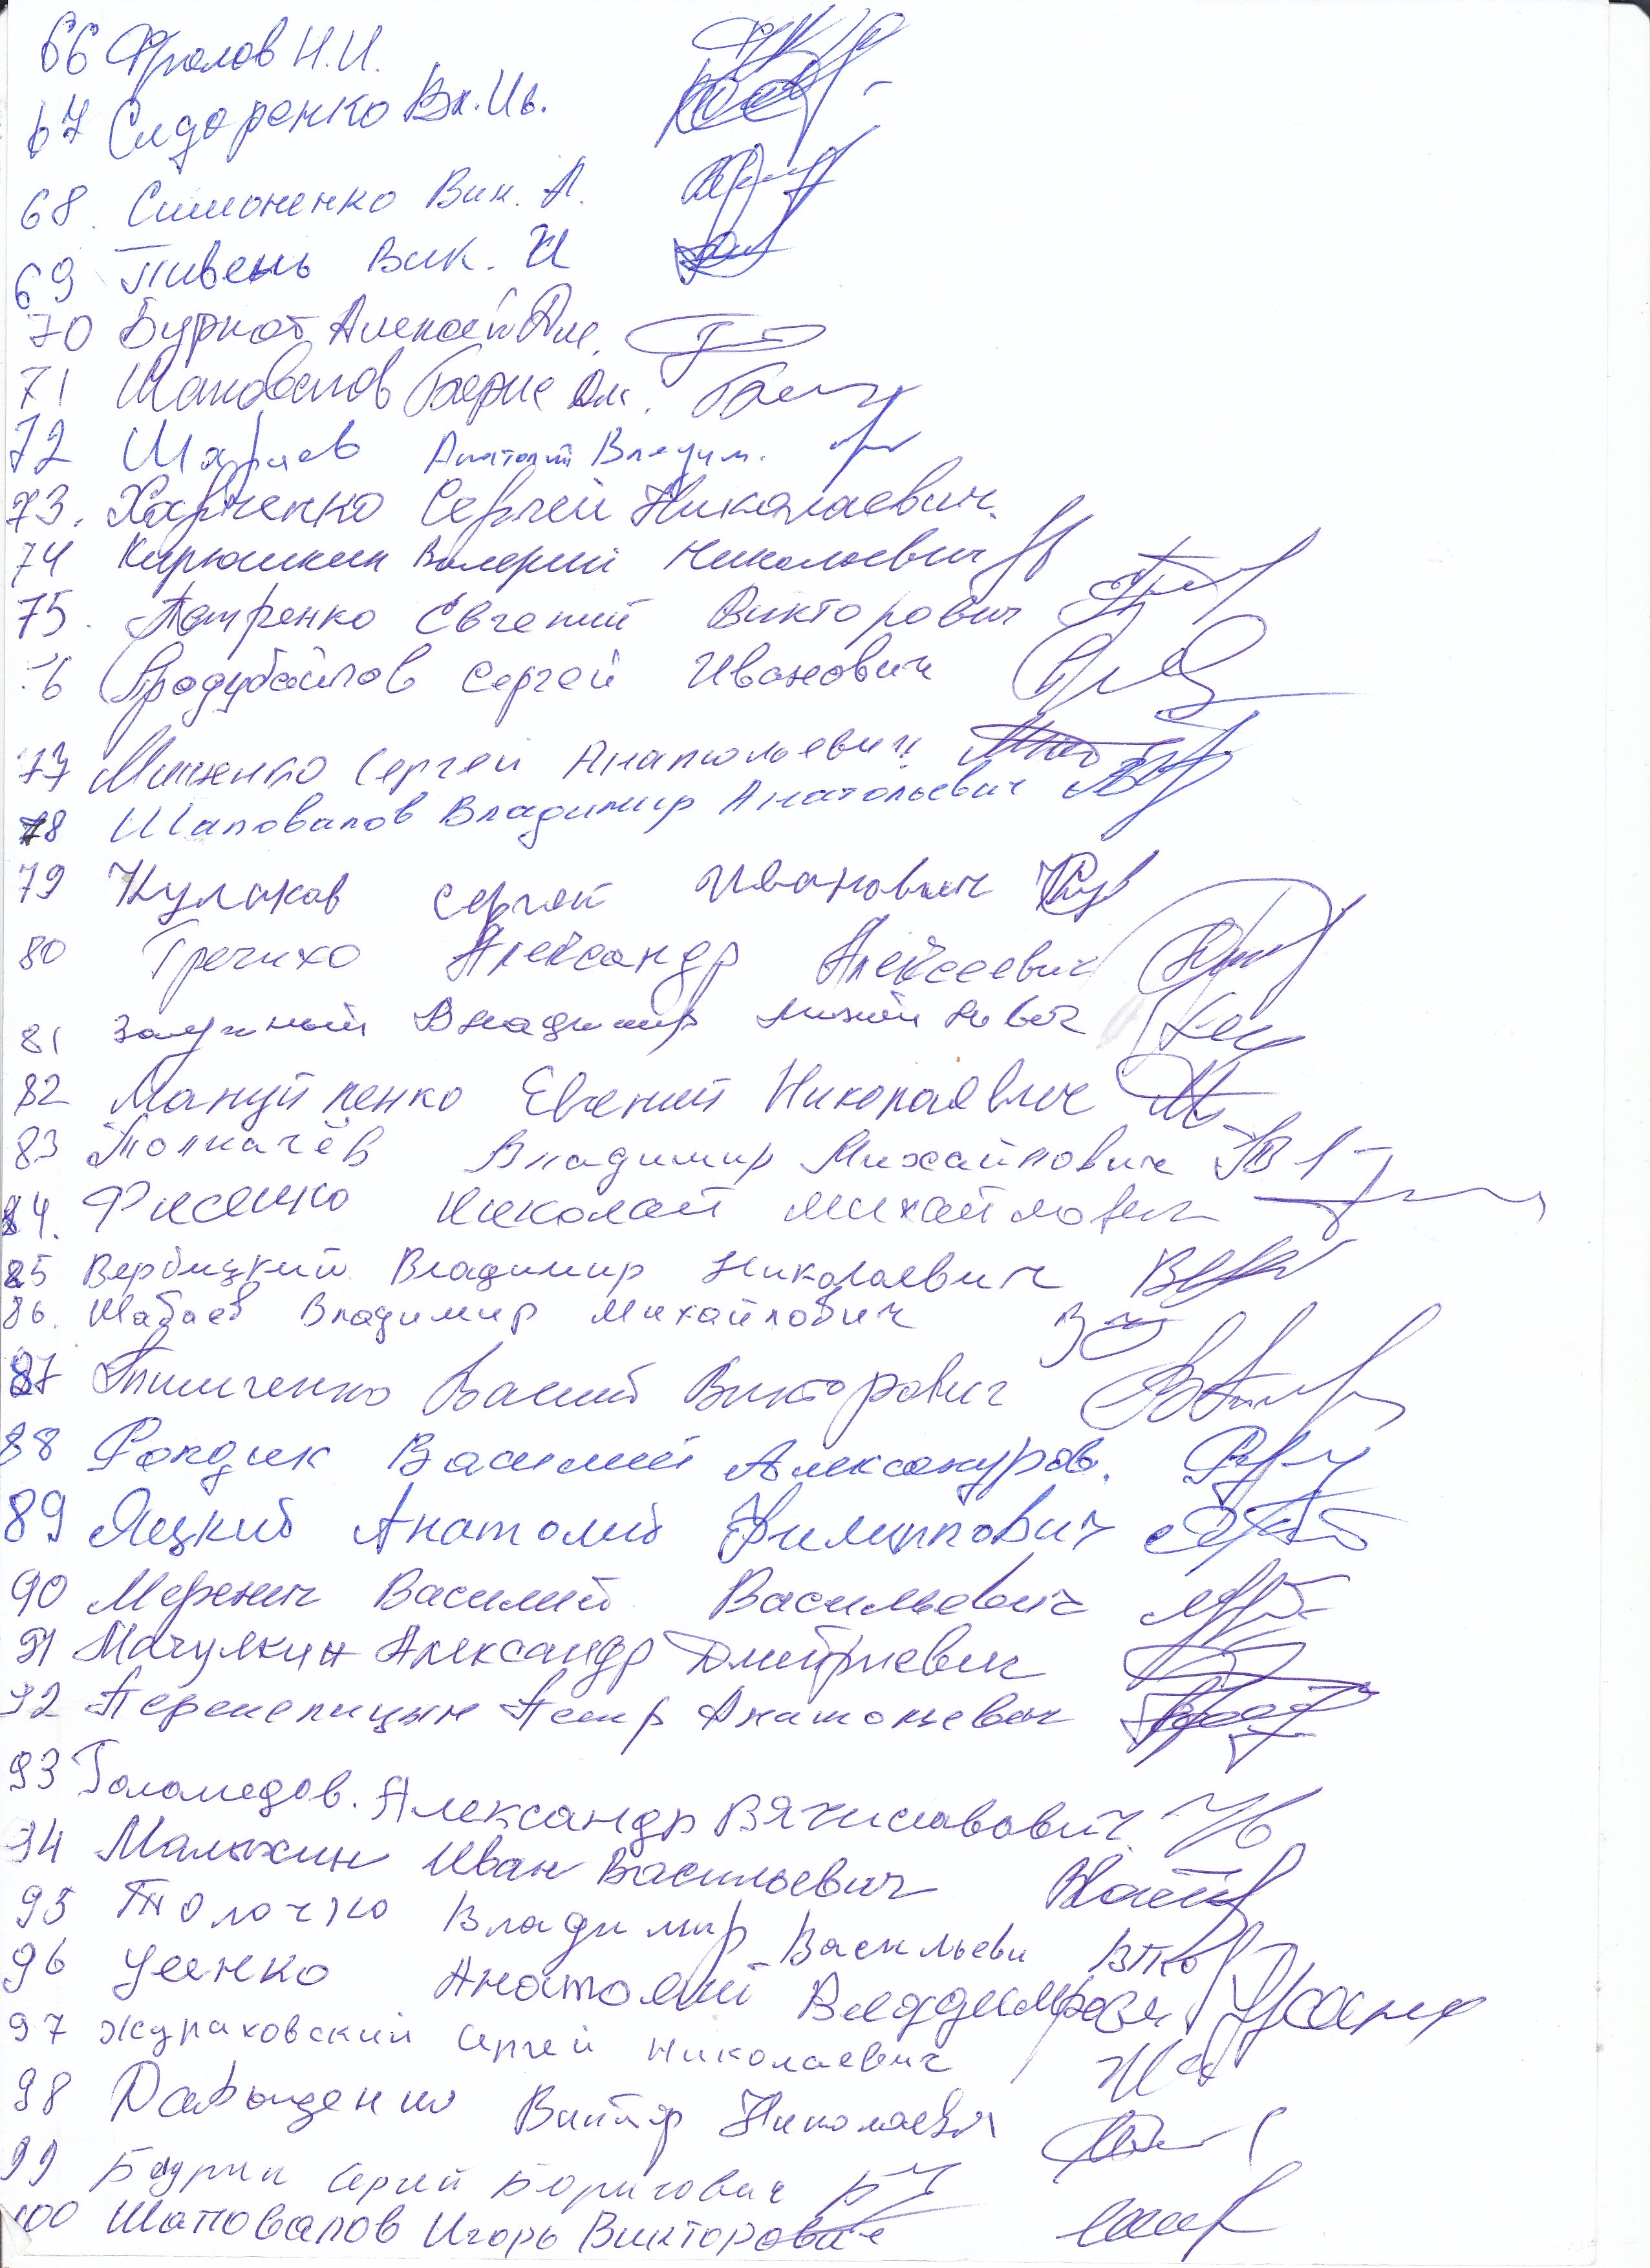 66 Фролов Н.И.
67 Сидоренко Вл. Ив.
68. Симоненко Вик. А.
69 Пивень Вик. И
70 Буркот Алексей Але.
71 Шаповалов Борис Ал.
72 Шараев Анатолий Владим.
73. Харченко Сергей Николаевич.
74 Кирюшкин Валерий Николаевич
75. Патренко Евгений Викторович
76 Продубайлов Сергей Иванович
77 Мищенко Сергей Анатольевич
78 Шаповалов Владимир Анатольевич
79 Кулаков Сергей Иванович
80 Гречихо Александр Алексеевич
81 Владимир
82 Мануйленко Евгений Николаевич
83 Толкачёв Владимир Михайлович
84. Фисенко Николай Михайлович
85 Вербицкий Владимир Николаевич
86. Шабаев Владимир Михайлович
87 Тимченко Василий Викторович
88 Рондик Василий Александров.
89 Яцкий Анатолий Филиппович
90 Меренич Василий Васильевич
91 Мачулкин Александр Дмитриевич
92 Перепелицын Петр Анатольевич
93 Голомедов. Александр Вячиславович
94 Малыхин Иван Васильевич
95 Толочко Владимир Васильеви
96 Усенко Анатолий
97 Жураховский Сергей Николаевич
98 Виктор Николаевич
99 Сергей Борисович
100 Шаповалов Игорь Викторович